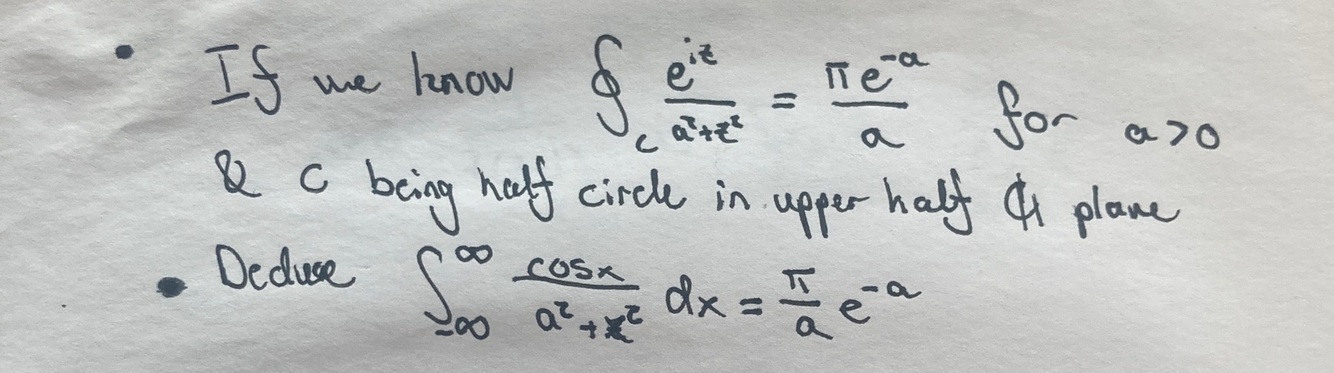 • If we know ∮_c e^{iz}/(a²+z²) = πe^{-a}/a for a>0
& c being half circle in upper half ℂ plane
• Deduce ∫_{-∞}^{∞} cosx/(a²+x²) dx = π/a e^{-a}